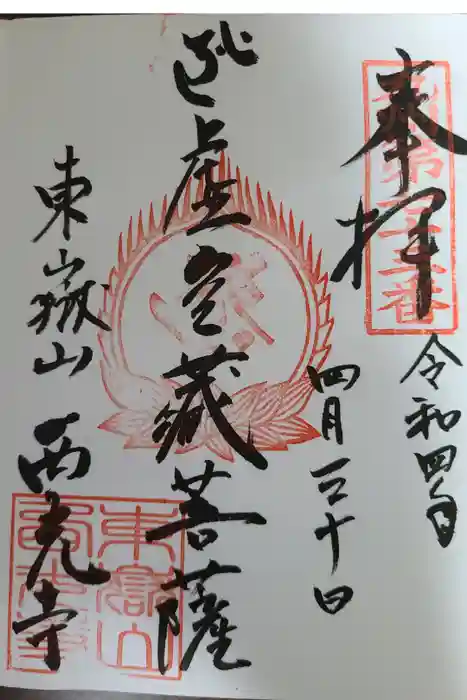 奉拝
令和四年
四月三十日
虚空蔵菩薩
東嶽山 西光寺